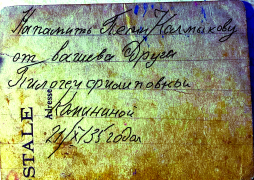 На память Пети Калмыкову
от вашева Друга
Пилогеи филиповной
Калининой
21/X/35 года
STALE
Adresse